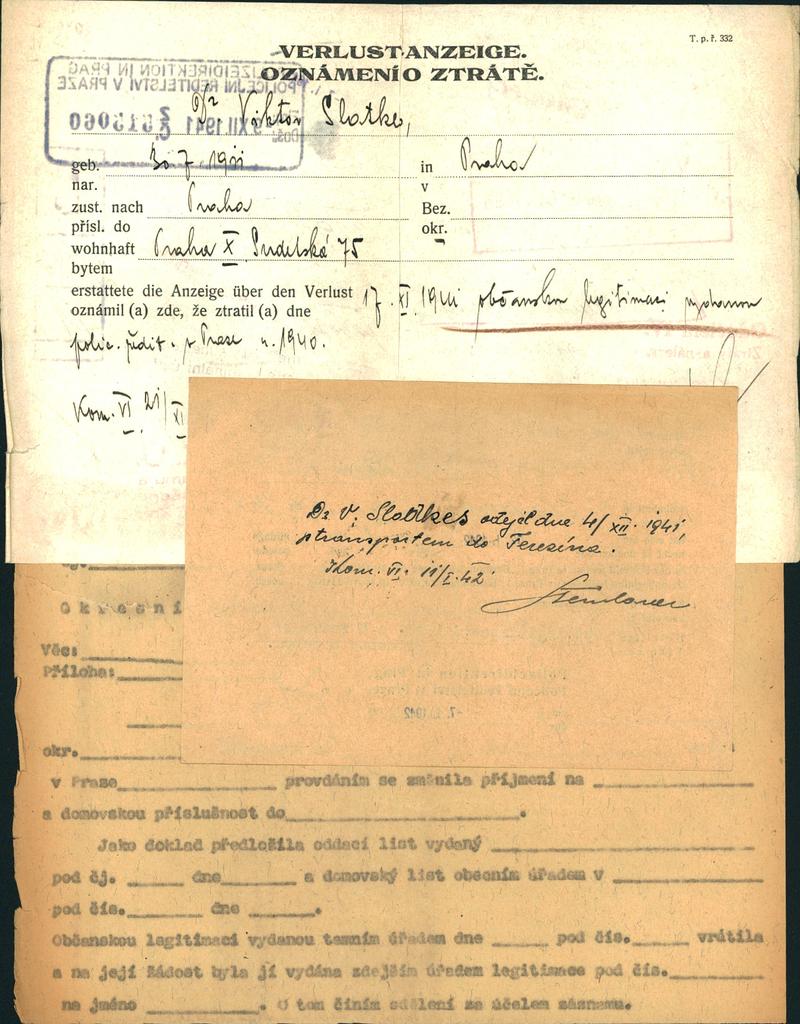 T. p. ř. 332
VERLUST-ANZEIGE.
OZNÁMENÍ O ZTRÁTĚ.
POLIZEIDIREKTION IN PRAG
POLICEJNÍ ŘEDITELSTVÍ V PRAZE
XII. 1941
Dr. Viktor Slatkes,
geb. 30 7. 1911 in Praha
nar. v
zust. nach Praha Bez.
přísl. do okr.
wohnhaft Praha X 75
bytem
erstattete die Anzeige über den Verlust 17. XI. 1941 občanskou legitimaci vydanou
oznámil (a) zde, že ztratil (a) dne
polic. ředit. v Praze r. 1940.
Kom. VI 21/XI
Dr V. Slatkes odejel dne 4/XII. 1941,
transportem do Terezína.
Kom. VI. 11/I. 42
7. 1942
Okresní
Věc:
Příloha:
okr.
v Praze provdáním se změnila příjmení na
a domovskou příslušnost do .
Jako doklad předložila oddací list vydaný
pod čj. dne a domovský list obecním úřadem v
pod čís. dne .
Občanskou legitimaci vydanou tamním úřadem dne pod čís. vrátila
a na její žádost byla jí vydána zdejším úřadem legitimace pod čís.
na jméno . O tom činím sdělení za účelem záznamu.